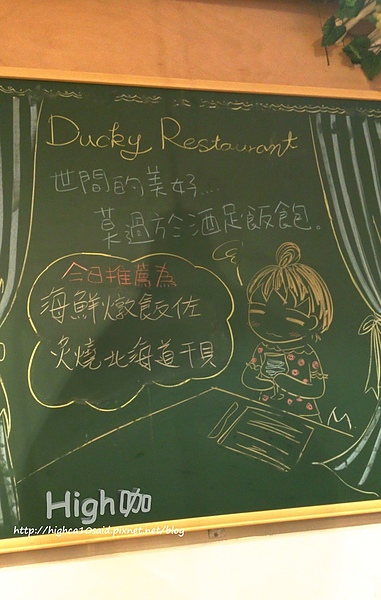 Ducky Restaurant
世間的美好...
莫過於酒足飯飽。
今日推薦為
海鮮燉飯佐
炙燒北海道干貝
High咖
http://highca10said.pixnet.net/blog